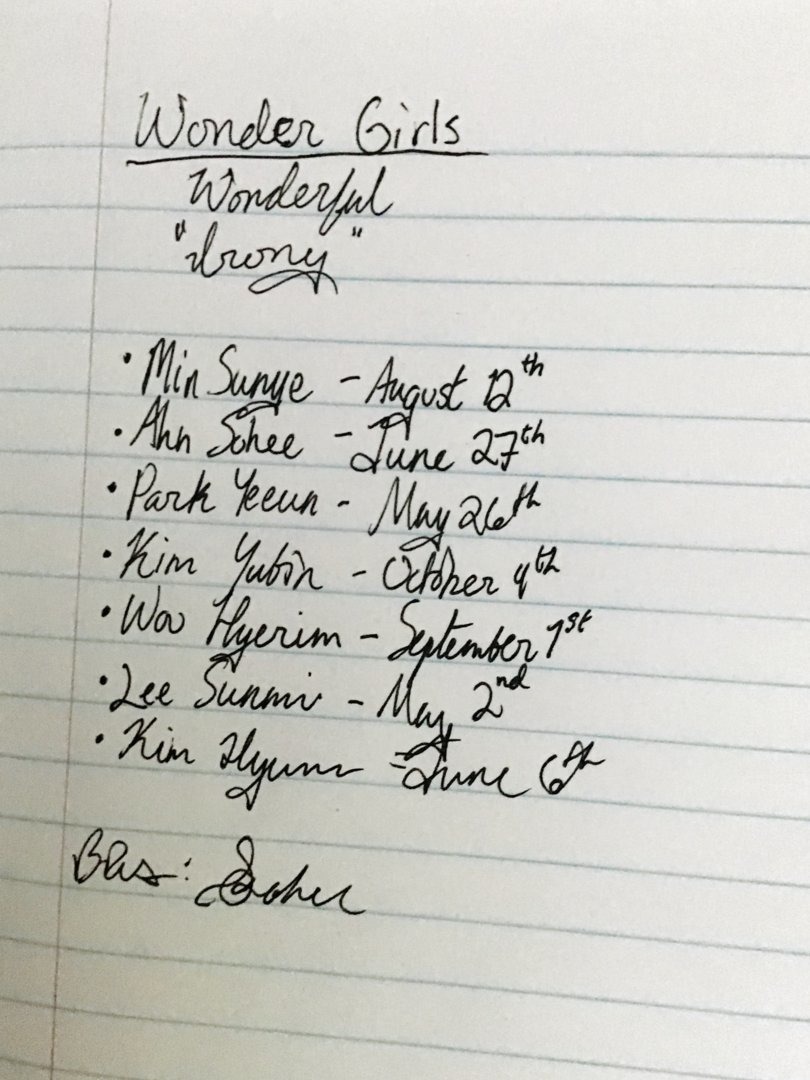 Wonder Girls
Wonderful
"Irony"
• Min Sunye - August 12th
• Ahn Sohee - June 27th
• Park Yeeun - May 26th
• Kim Yubin - October 4th
• Woo Hyerim - September 1st
• Lee Sunmi - May 2nd
• Kim Hyuna - June 6th
Bias: Sohee